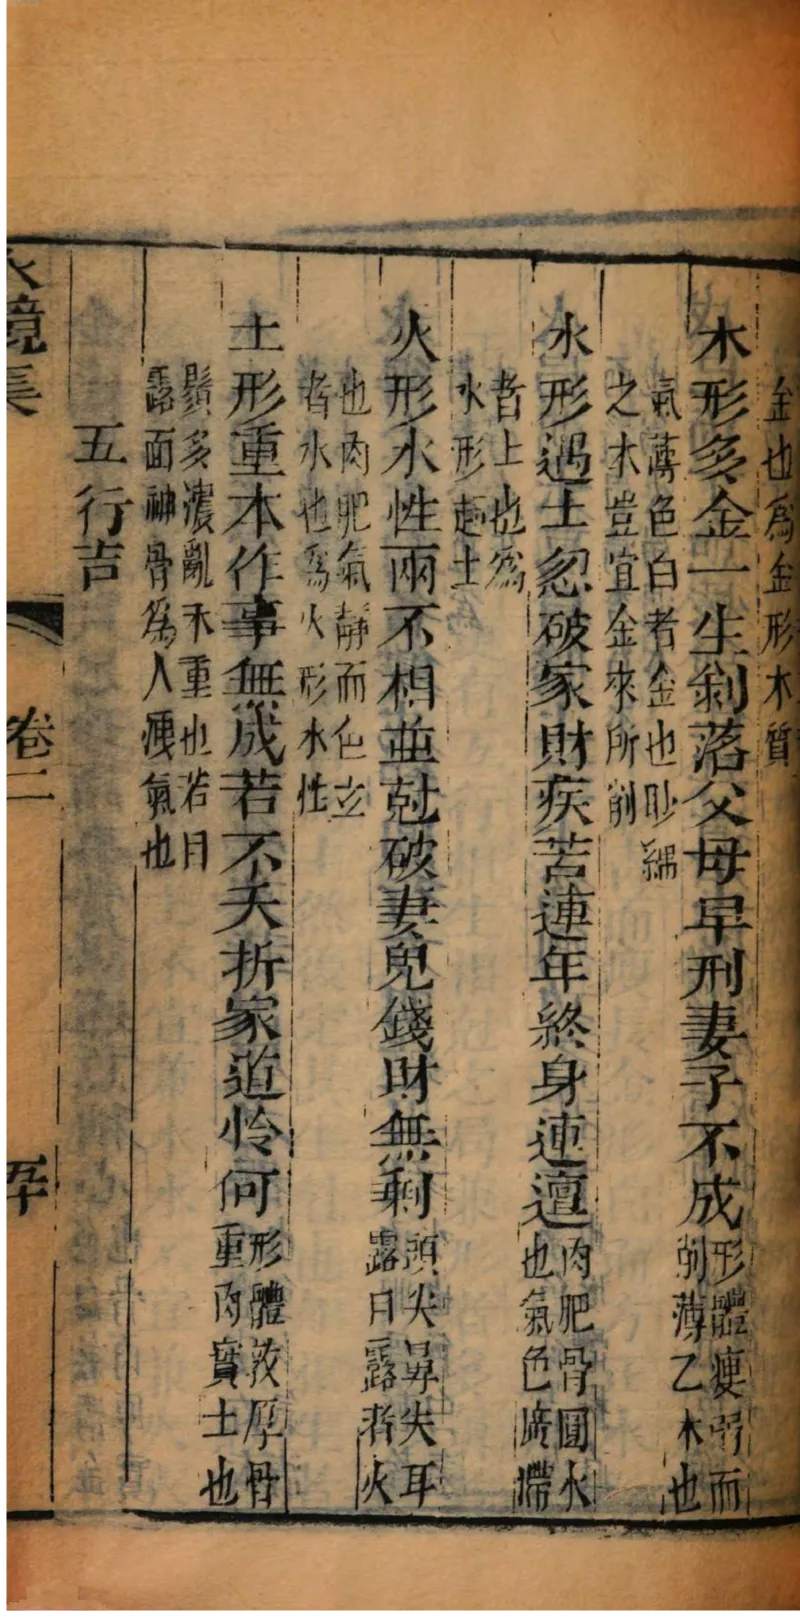 金也爲金形木質
木形多金一生剝落父母早刑妻子不成
形體瘦弱而
削薄乙木也
氣薄色白者金也
之木豈宜金來所削
水形遇土忽破家財疾苦連年終身迍邅
肉肥骨圓水
也氣色廣滯
者上也爲
水形土
火形水性兩不相並尅破妻兒錢財無剩
頭尖鼻尖耳
露日露者火
也肉肥氣靜而色玄
者水也爲火形水性
土形重本作事無成若不夭折家道怜何
形體敦厚骨
重肉實士也
鬚多濃亂木重也若日
露面神骨爲人瘦氣也
五行吉
水鏡集
卷二